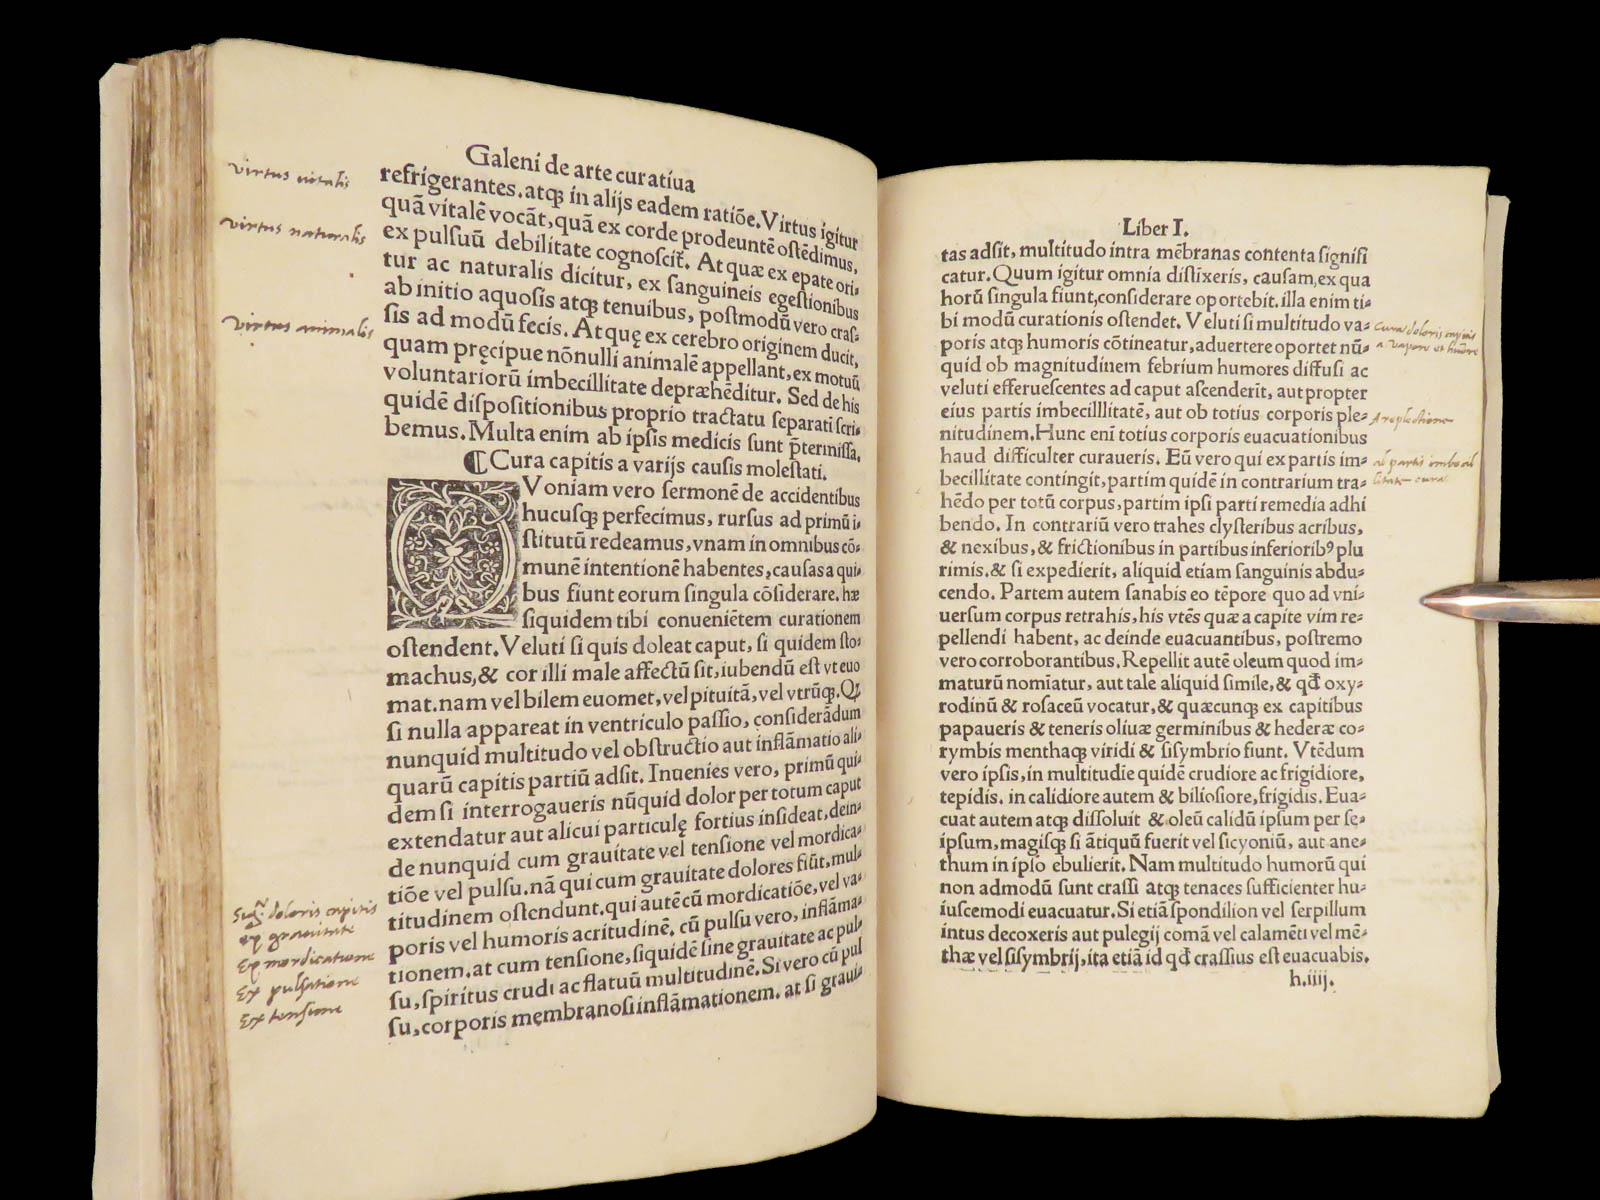 Galeni de arte curatiua
virtus vitalis
virtus naturalis
virtus animalis
refrigerantes. atq̃ in alijs eadem ratiõe. Virtus igitur
quã vitalẽ vocãt, quã ex corde prodeuntẽ ostẽdimus,
ex pulsuũ debilitate cognoscit̃. At quæ ex epate ori-
tur ac naturalis dicitur, ex sanguineis egestionibus
ab initio aquosis atq̃ tenuibus, postmodũ vero cras-
sis ad modũ fecis. At quę ex cerebro originem ducit,
quam pręcipue nõnulli animalẽ appellant, ex motuũ
voluntariorũ imbecillitate depræhẽditur. Sed de his
quidẽ dispositionibus proprio tractatu separati scri-
bemus. Multa enim ab ipsis medicis sunt p̃termissa.
¶ Cura capitis a varijs causis molestati.
QVoniam vero sermonẽ de accidentibus
hucusq̃ perfecimus, rursus ad primũ i-
stitutũ redeamus, vnam in omnibus cõ-
munẽ intentionẽ habentes, causas a qui-
bus fiunt eorum singula cõsiderare. hæ
siquidem tibi conueniẽtem curationem
ostendent. Veluti si quis doleat caput, si quidem sto-
machus, & cor illi male affectũ sit, iubendũ est vt euo
mat. nam vel bilem euomet, vel pituitã, vel vtrũq̃. Q̃
si nulla appareat in ventriculo passio, considerãdum
nunquid multitudo vel obstructio aut inflãmatio ali-
quarũ capitis partiũ adsit. Inuenies vero, primũ qui-
dem si interrogaueris nũquid dolor per totum caput
extendatur aut alicui particulę fortius insideat, dein-
de nunquid cum grauitate vel tensione vel mordica-
tiõe vel pulsu. nã qui cum grauitate dolores fiũt, mul-
titudinem ostendunt. qui autẽ cũ mordicatiõe, vel va-
poris vel humoris acritudinẽ. cũ pulsu vero, inflãma-
tionem. at cum tensione, siquidẽ sine grauitate ac pul-
su, spiritus crudi ac flatuũ multitudinẽ. Si vero cũ pul
su, corporis membranosi inflãmationem. at si graui-
doloris capitis
ex grauitate
Ex mordicatione
Ex pulsatione
Ex tensione
Liber I.
tas adsit, multitudo intra mẽbranas contenta signifi
catur. Quum igitur omnia distixeris, causam, ex qua
horũ singula fiunt, considerare oportebit. illa enim ti-
bi modũ curationis ostendet. Veluti si multitudo va-
poris atq̃ humoris cõtineatur, aduertere oportet nũ-
quid ob magnitudinem febrium humores diffusi ac
veluti efferuescentes ad caput ascenderĩt, aut propter
eius partis imbecilllitatẽ, aut ob totius corporis ple-
nitudinem. Hunc enĩ totius corporis euacuationibus
haud difficulter curaueris. Eũ vero qui ex partis im-
becillitate contingit, partim quidẽ in contrarium tra-
hẽdo per totũ corpus, partim ipsi parti remedia adhi
bendo. In contrariũ vero trahes clysteribus acribus,
& nexibus, & frictionibus in partibus inferiorib⁹ plu
rimis. & si expedierit, aliquid etiam sanguinis abdu-
cendo. Partem autem sanabis eo tẽpore quo ad vni-
uersum corpus retrahis, his vtẽs quæ a capite vim re-
pellendi habent, ac deinde euacuantibus, postremo
vero corroborantibus. Repellit autẽ oleum quod im-
maturũ nomĩatur, aut tale aliquid simile, & qđ oxy-
rodinũ & rosaceũ vocatur, & quæcunq̃ ex capitibus
papaueris & teneris oliuæ germinibus & hederæ co-
rymbis menthaq̃ viridi & sisymbrio fiunt. Vtẽdum
vero ipsis, in multitudĩe quidẽ crudiore ac frigidiore,
tepidis. in calidiore autem & biliosiore, frigidis. Eua-
cuat autem atq̃ dissoluit & oleũ calidũ ipsum per se-
ipsum, magisq̃ si ãtiquũ fuerit vel sicyoniũ, aut ane-
thum in ipso ebulierit. Nam multitudo humorũ qui
non admodũ sunt crassi atq̃ tenaces sufficienter hu-
iuscemodi euacuatur. Si etiã spondilion vel serpillum
intus decoxeris aut pulegij comã vel calamẽti vel mẽ-
thæ vel sisymbrij, ita etiã id qđ crassius est euacuabis.
h.iiij.
Cura doloris capitis
a vapore et humore
A replectione
ab partis imbecil
litate cura